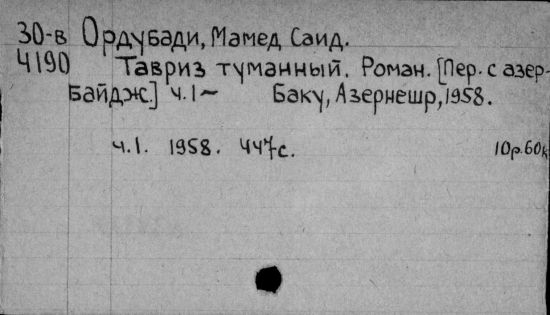 30-в Ордубади, Мамед Саид.
4190 Тавриз туманный. Роман. [Пер. с азер-
байдж.] ч.1 ~ Баку, Азернешр, 1958.
ч.1. 1958. 447с. 10р.60к